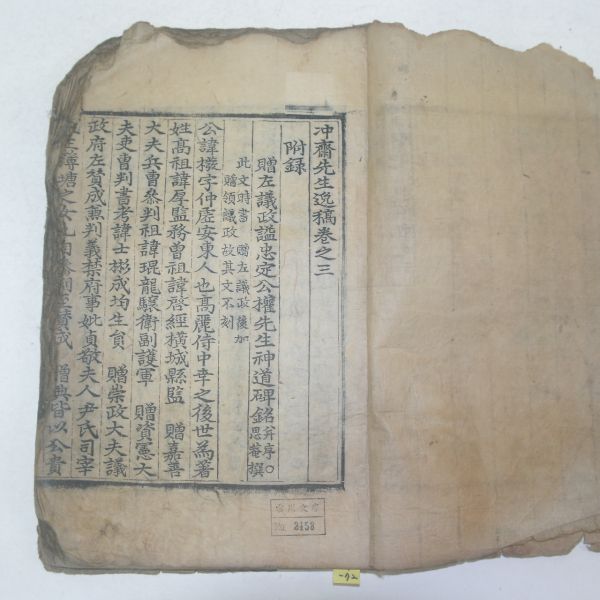 冲齋先生逸稿卷之三
附録
贈左議政謚忠定公權先生神道碑銘 幷序○思菴撰
此文時書 贈左議政後加
贈領議政故其文不刻
公諱橃字仲虛安東人也高麗侍中幸之後世爲著
姓高祖諱厚監務曾祖諱啓經橫城縣監 贈嘉善
大夫兵曹參判祖諱琨龍驤衛副護軍 贈資憲大
夫吏曹判書考諱士彬成均生員 贈崇政大夫議
政府左贊成兼判義禁府事妣貞敬夫人尹氏司宰
塘之女 贊成 贈典皆以公貴
2153
-72